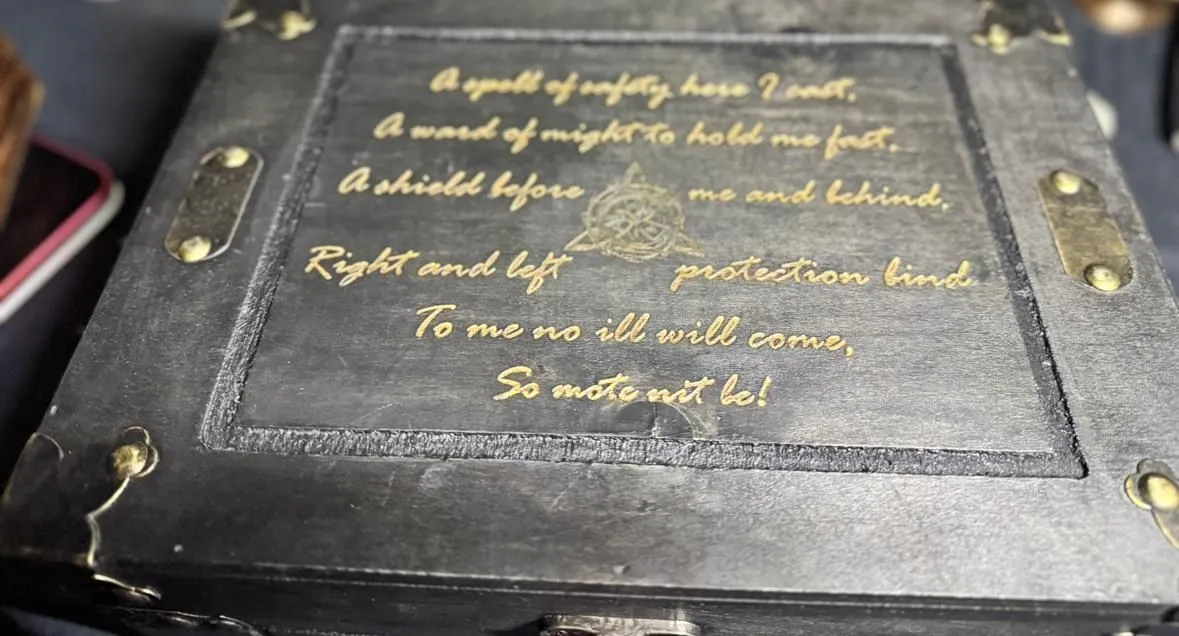 A spell of safety here I cast,
A ward of might to hold me fast.
A shield before me and behind,
Right and left protection bind
To me no ill will come,
So mote nit be!